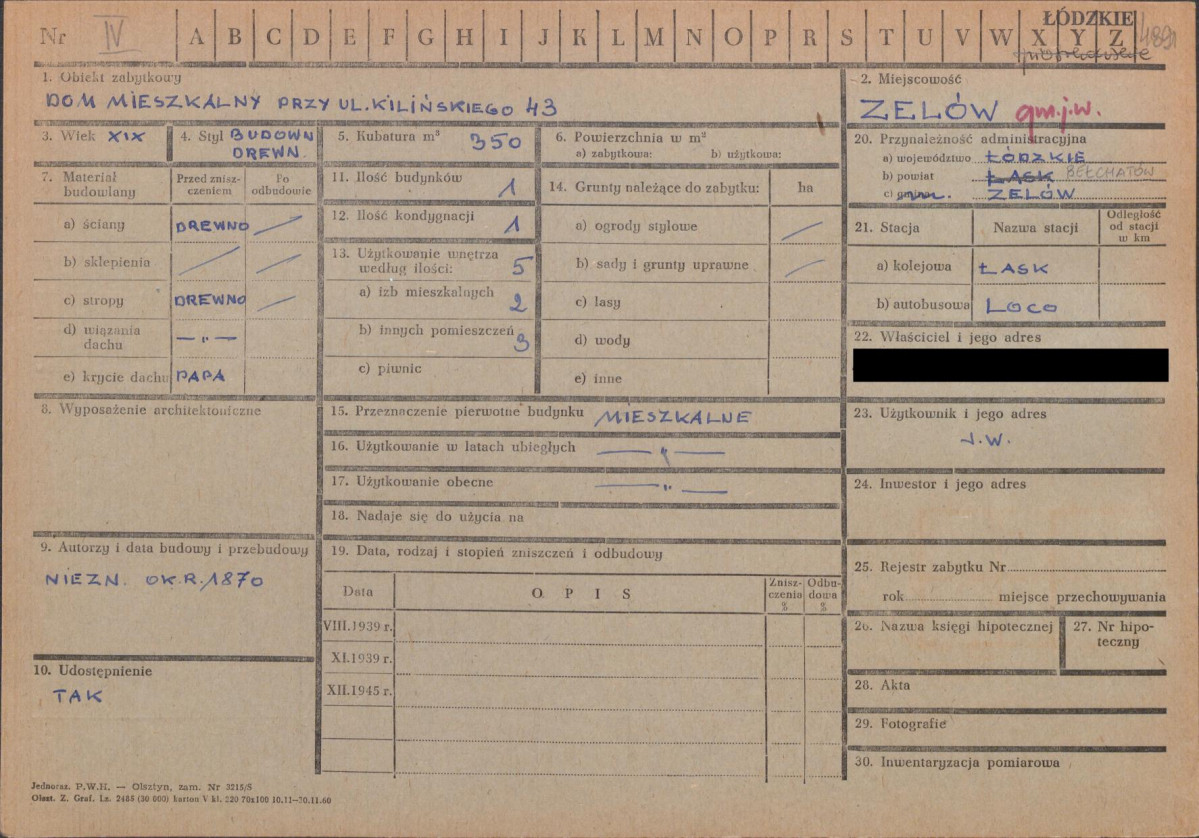 Nr IV A B C D E F G H I J K L M N O P R S T U V W X Y Z
ŁÓDZKIE
4891
1. Obiekt zabytkowy
DOM MIESZKALNY PRZY UL. KILIŃSKIEGO 43
2. Miejscowość
ZELÓW gm.j.w.
3. Wiek XIX
4. Styl BUDOWN
DREWN.
5. Kubatura m³ 350
6. Powierzchnia w m²
a) zabytkowa: b) użytkowa:
20. Przynależność administracyjna
a) województwo ŁÓDZKIE
b) powiat ŁASK BEŁCHATÓW
c) gmina ZELÓW
7. Materiał
budowlany
Przed znisz-
czeniem
Po
odbudowie
a) ściany DREWNO
b) sklepienia
c) stropy DREWNO
d) wiązania
dachu — " —
e) krycie dachu PAPA
11. Ilość budynków 1
12. Ilość kondygnacji 1
13. Użytkowanie wnętrza
według ilości: 5
a) izb mieszkalnych 2
b) innych pomieszczeń 3
c) piwnic
14. Grunty należące do zabytku: ha
a) ogrody stylowe
b) sady i grunty uprawne
c) lasy
d) wody
e) inne
21. Stacja Nazwa stacji
Odległość
od stacji
w km
a) kolejowa ŁASK
b) autobusowa LOCO
22. Właściciel i jego adres
8. Wyposażenie architektoniczne
15. Przeznaczenie pierwotne budynku MIESZKALNE
16. Użytkowanie w latach ubiegłych — " —
17. Użytkowanie obecne — " —
18. Nadaje się do użycia na
23. Użytkownik i jego adres
J.W.
24. Inwestor i jego adres
9. Autorzy i data budowy i przebudowy
NIEZN. OK.R.1870
10. Udostępnienie
TAK
19. Data, rodzaj i stopień zniszczeń i odbudowy
Data O P I S
Znisz-
czenia
%
Odbu-
dowa
%
VIII.1939 r.
XI.1939 r.
XII.1945 r.
25. Rejestr zabytku Nr
rok miejsce przechowywania
26. Nazwa księgi hipotecznej
27. Nr hipo-
teczny
28. Akta
29. Fotografie
30. Inwentaryzacja pomiarowa
Jednoraz. P.W.H. — Olsztyn, zam. Nr 3215/5
Olszt. Z. Graf. Lz. 2485 (30 000) karton V kl. 220 70x100 10.11—70.11.60